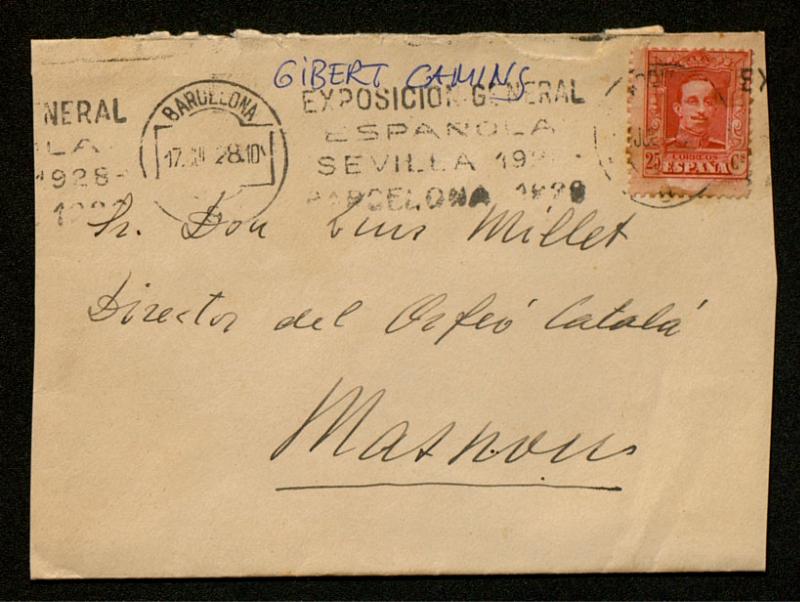 GIBERT CAMINS
NERAL
LA
1928-
BARCELONA
28.10
EXPOSICION GENERAL
ESPAÑOLA
SEVILLA 19
BARCELONA 1929
25 CORREOS Cs
ESPAÑA
EX
Sr. Don Luis Millet
Director del Orfeó Catalá
Masnou